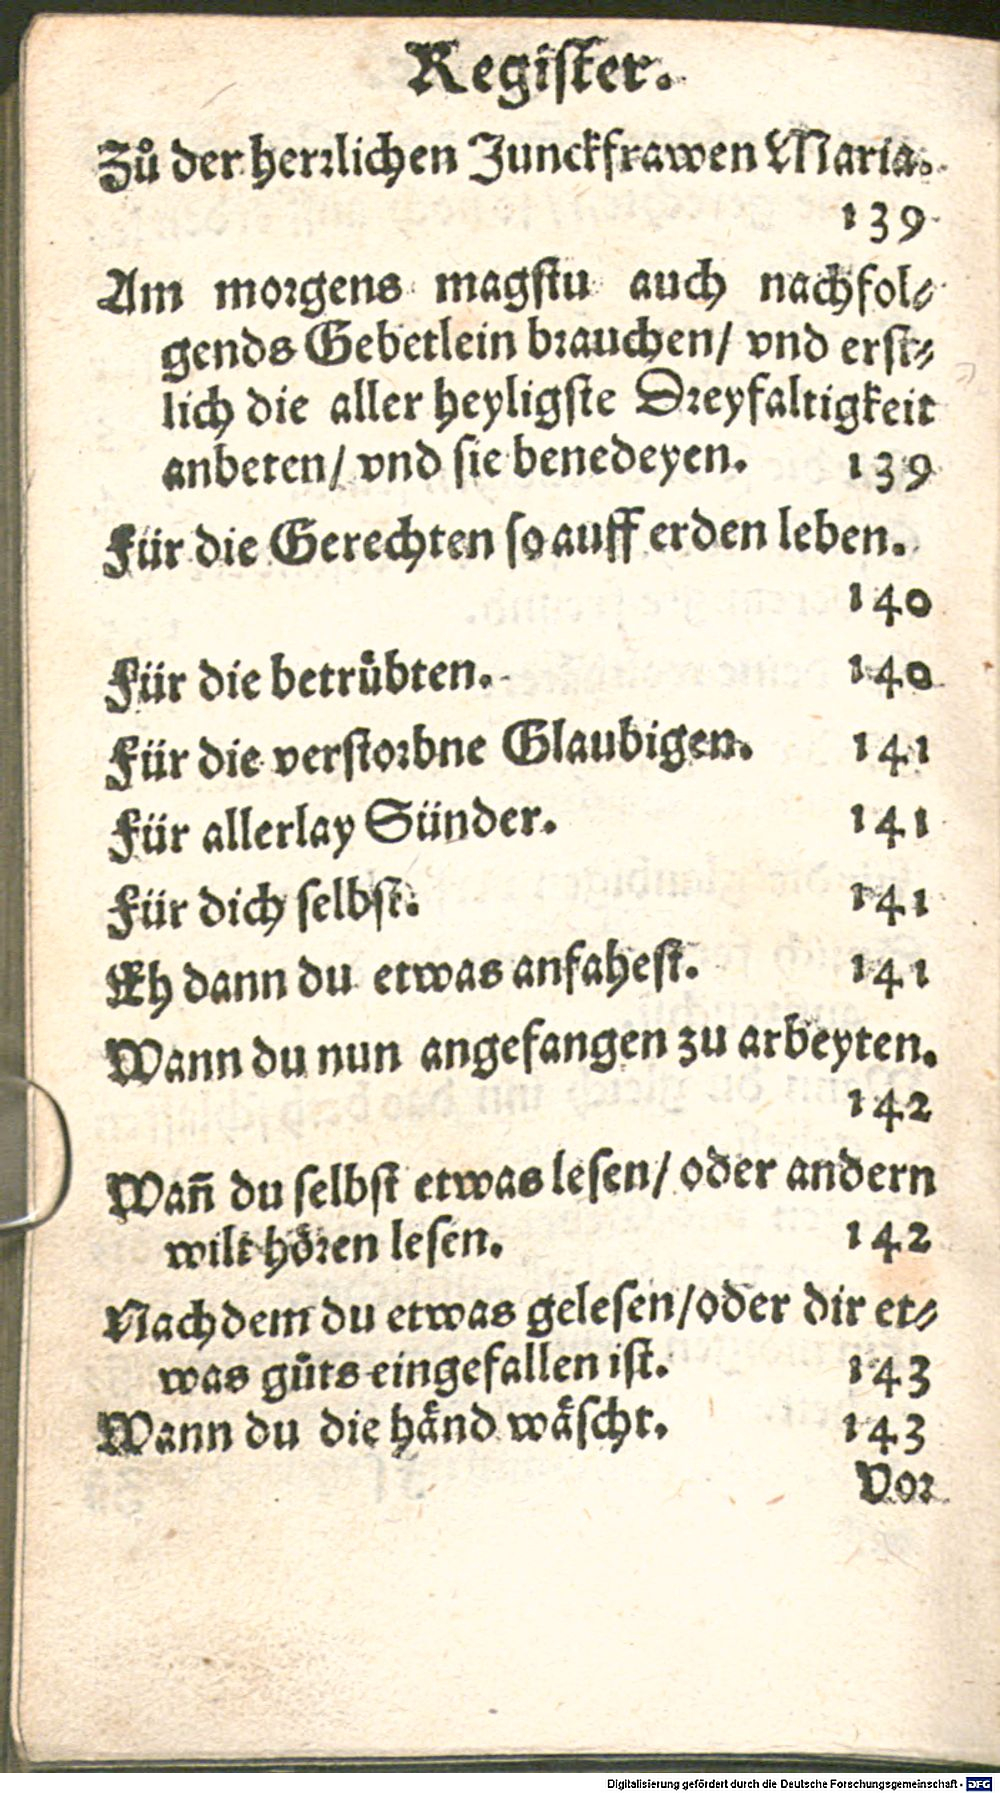 Regiſter.
Zů der herꝛlichen Junckfrawen Maria.
139
Am moꝛgens magſtu auch nachfol⸗
gends Gebetlein bꝛauchen/ vnd erſt⸗
lich die aller heyligſte Dꝛeyfaltigkeit
anbeten/ vnd ſie benedeyen. 139
Für die Gerechten ſo auff erden leben.
140
Für die betrůbten. 140
Für die verſtoꝛbne Glaubigen. 141
Für allerlay Sünder. 141
Für dich ſelbſt. 141
Eh dann du etwas anfaheſt. 141
Wann du nun angefangen zu arbeyten.
142
Wañ du ſelbſt etwas leſen/ oder andern
wilt hoͤꝛen leſen. 142
Nach dem du etwas geleſen/oder dir et⸗
was gůts eingefallen iſt. 143
Wann du die haͤnd waͤſcht. 143
Voꝛ
Digitalisierung gefördert durch die Deutsche Forschungsgemeinschaft - DFG